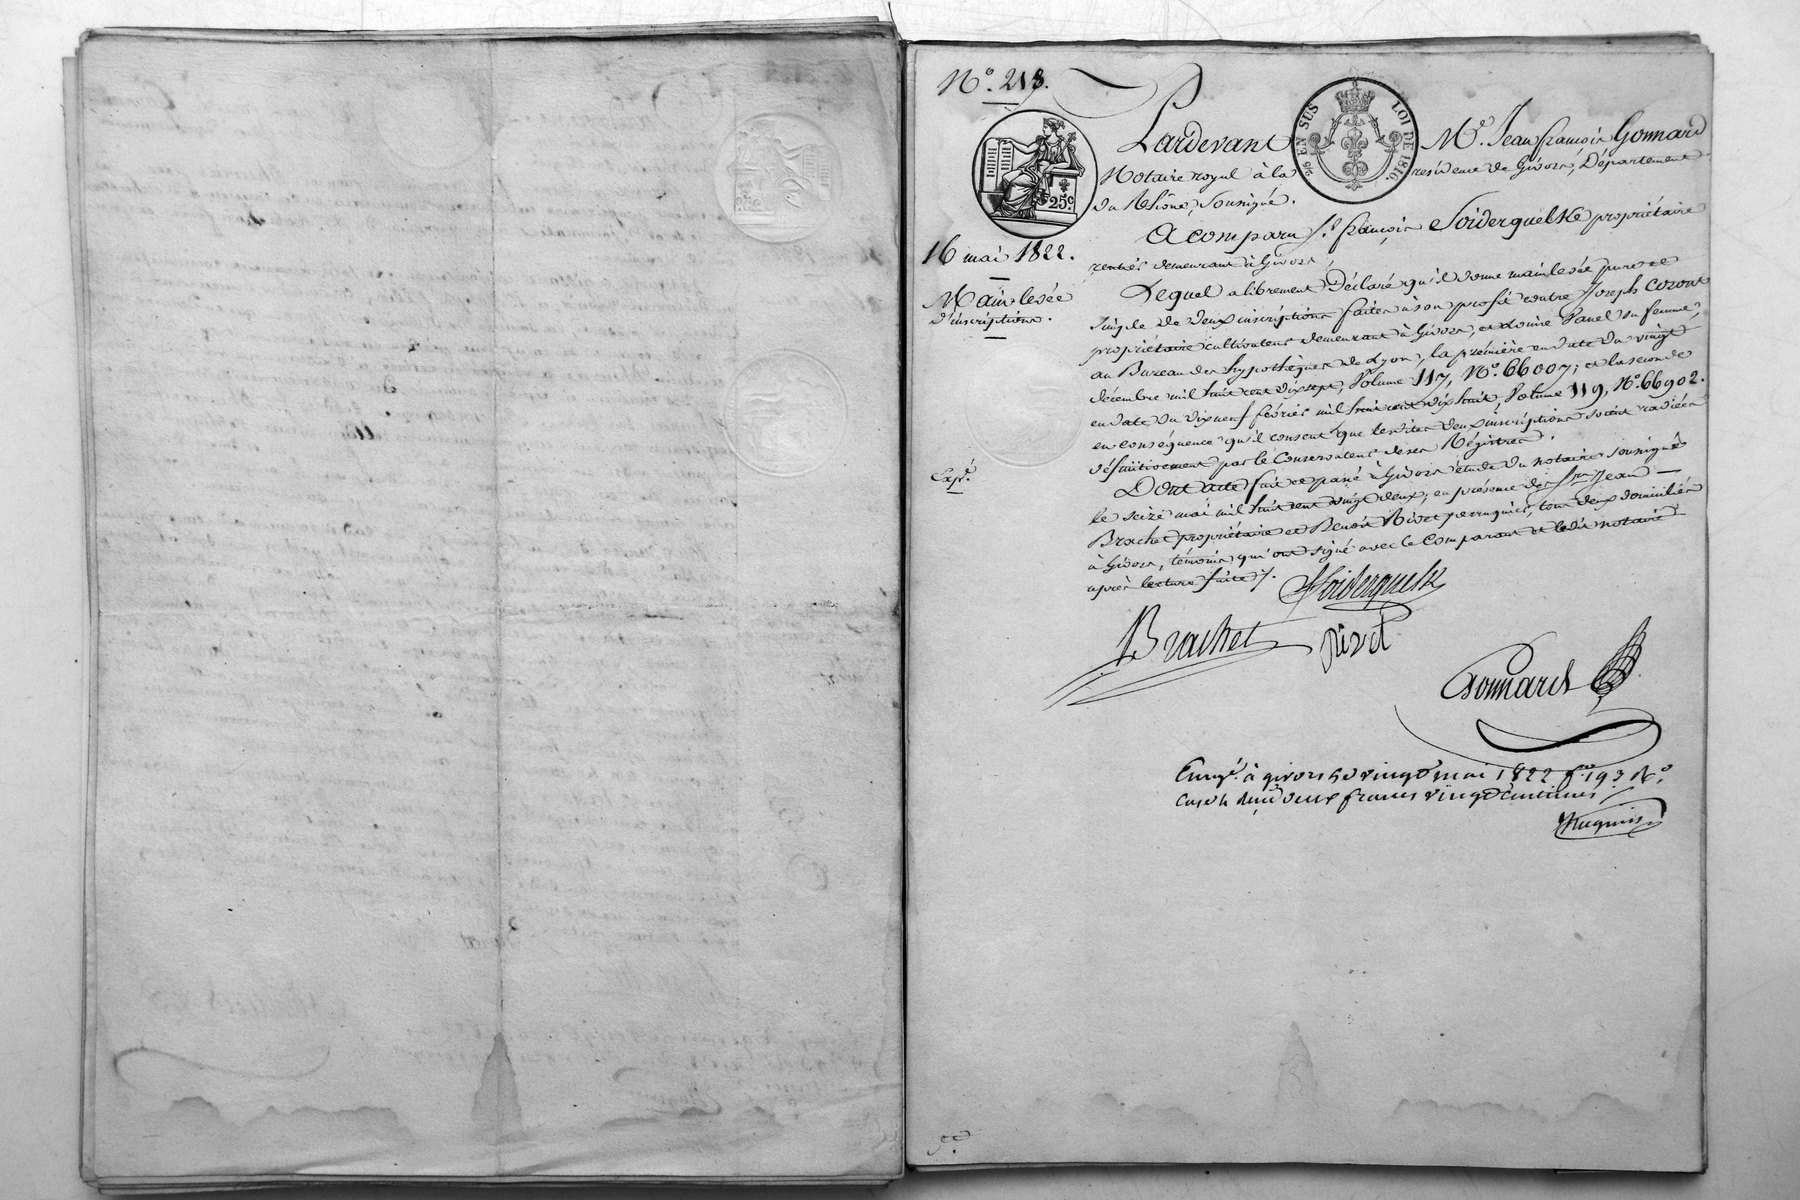 N.° 213.
Pardevant M.e Jean françois Gonnard
Notaire royal à la résidence de Givors, Département
du Rhône, Soussigné.
EN SUS LOI DE 1816.
25c
16 mai 1822.
Mainlevée
d'inscriptions.
Exp.é
A comparu S.r françois Soiderquelk propriétaire
rentier demeurant à Givors,
Lequel a librement Déclaré qu'il donne mainlevée pure et
simple de deux inscriptions faites à son profit contre Joseph Coront
propriétaire cultivateur demeurant à Givors, et Louise Panel sa femme,
au Bureau des hypothèques de Lyon, la première en date du vingt
décembre mil huit cent dix sept, Volume 117, N.° 66007; et la seconde
en date du dix neuf février mil huit cent dix huit, Volume 119, N.° 66902.
en conséquence qu'il consent que lesdites deux inscriptions soient radiées
définitivement par le Conservateur de ses Régistres.
Dont acte fait et passé à Givors étude du notaire soussigné
le seize mai mil huit cent vingt deux, en présence des S.rs Jean
Brachet propriétaire et Benoit Rivet perruquier, tous deux domiciliés
à Givors, témoins qui ont signé avec le Comparant et ledit notaire
après lecture faite /.
Soiderquelk
Brachet rivet
Gonnard
Enregé. à givors le vingt mai 1822 f.o 193 R.o
Case 4 Reçu deux francs vingt centimes